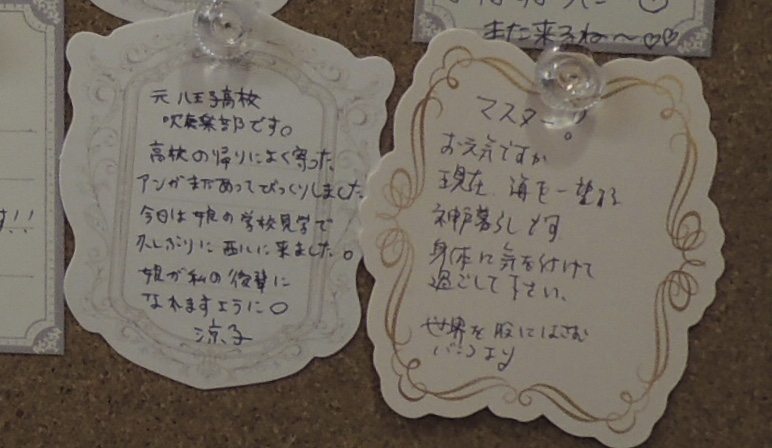 また来るね〜♡♡
す!!
元八王子高校
吹奏楽部です。
高校の帰りによく寄った
アンがまだあってびっくりしました
今日は娘の学校見学で
久しぶりに西八に来ました。
娘が私の後輩に
なれますように○
涼子
マスターへ
お元気ですか
現在 海を一望する
神戸暮らしです
身体に気を付けて
過ごして下さい、
世界を股にはさむ
より